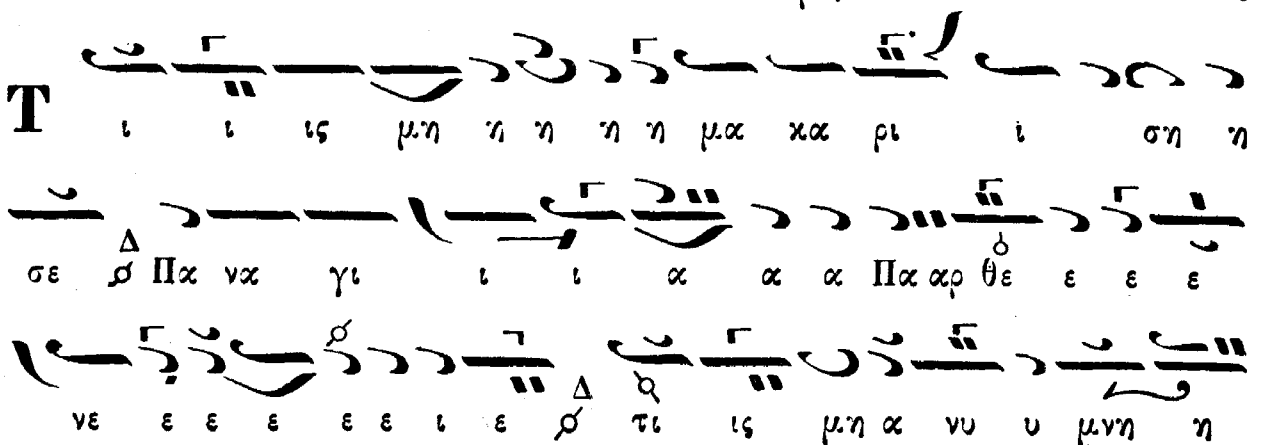 Τ ι ι ις μη η η η η μα κα ρι ι ση η
σε Δ Πα να γι ι ι α α α α Πα αρ θε ε ε ε
νε ε ε ε ε ε ι ε Δ τι ις μη α νυ υ μνη η